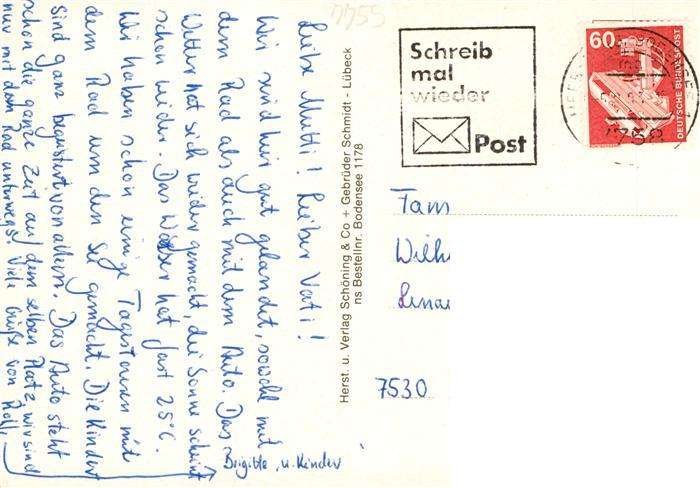 Liebe Mutti! Lieber Vati!
Wir sind hier gut gelandet, sowohl mit
dem Rad als auch mit dem Auto. Das
Wetter hat sich wieder gemacht, die Sonne scheint
schon wieder. Das Wasser hat fast 25°C.
Wir haben schon einige Tagestouren mit
dem Rad um den See gemacht. Die Kinder
sind ganz begeistert von allem. Das Auto steht
schon die ganze Zeit auf dem selben Platz, wir sind
nur mit dem Rad unterwegs! Viele Grüße von Rolf,
Brigitte, u. Kinder
Herst. u. Verlag Schöning & Co + Gebrüder Schmidt - Lübeck
ns Bestellnr. Bodensee 1178
7755
Schreib
mal
wieder
Post
60
DEUTSCHE BUNDESPOST
7758
Fam
Wilh
7530